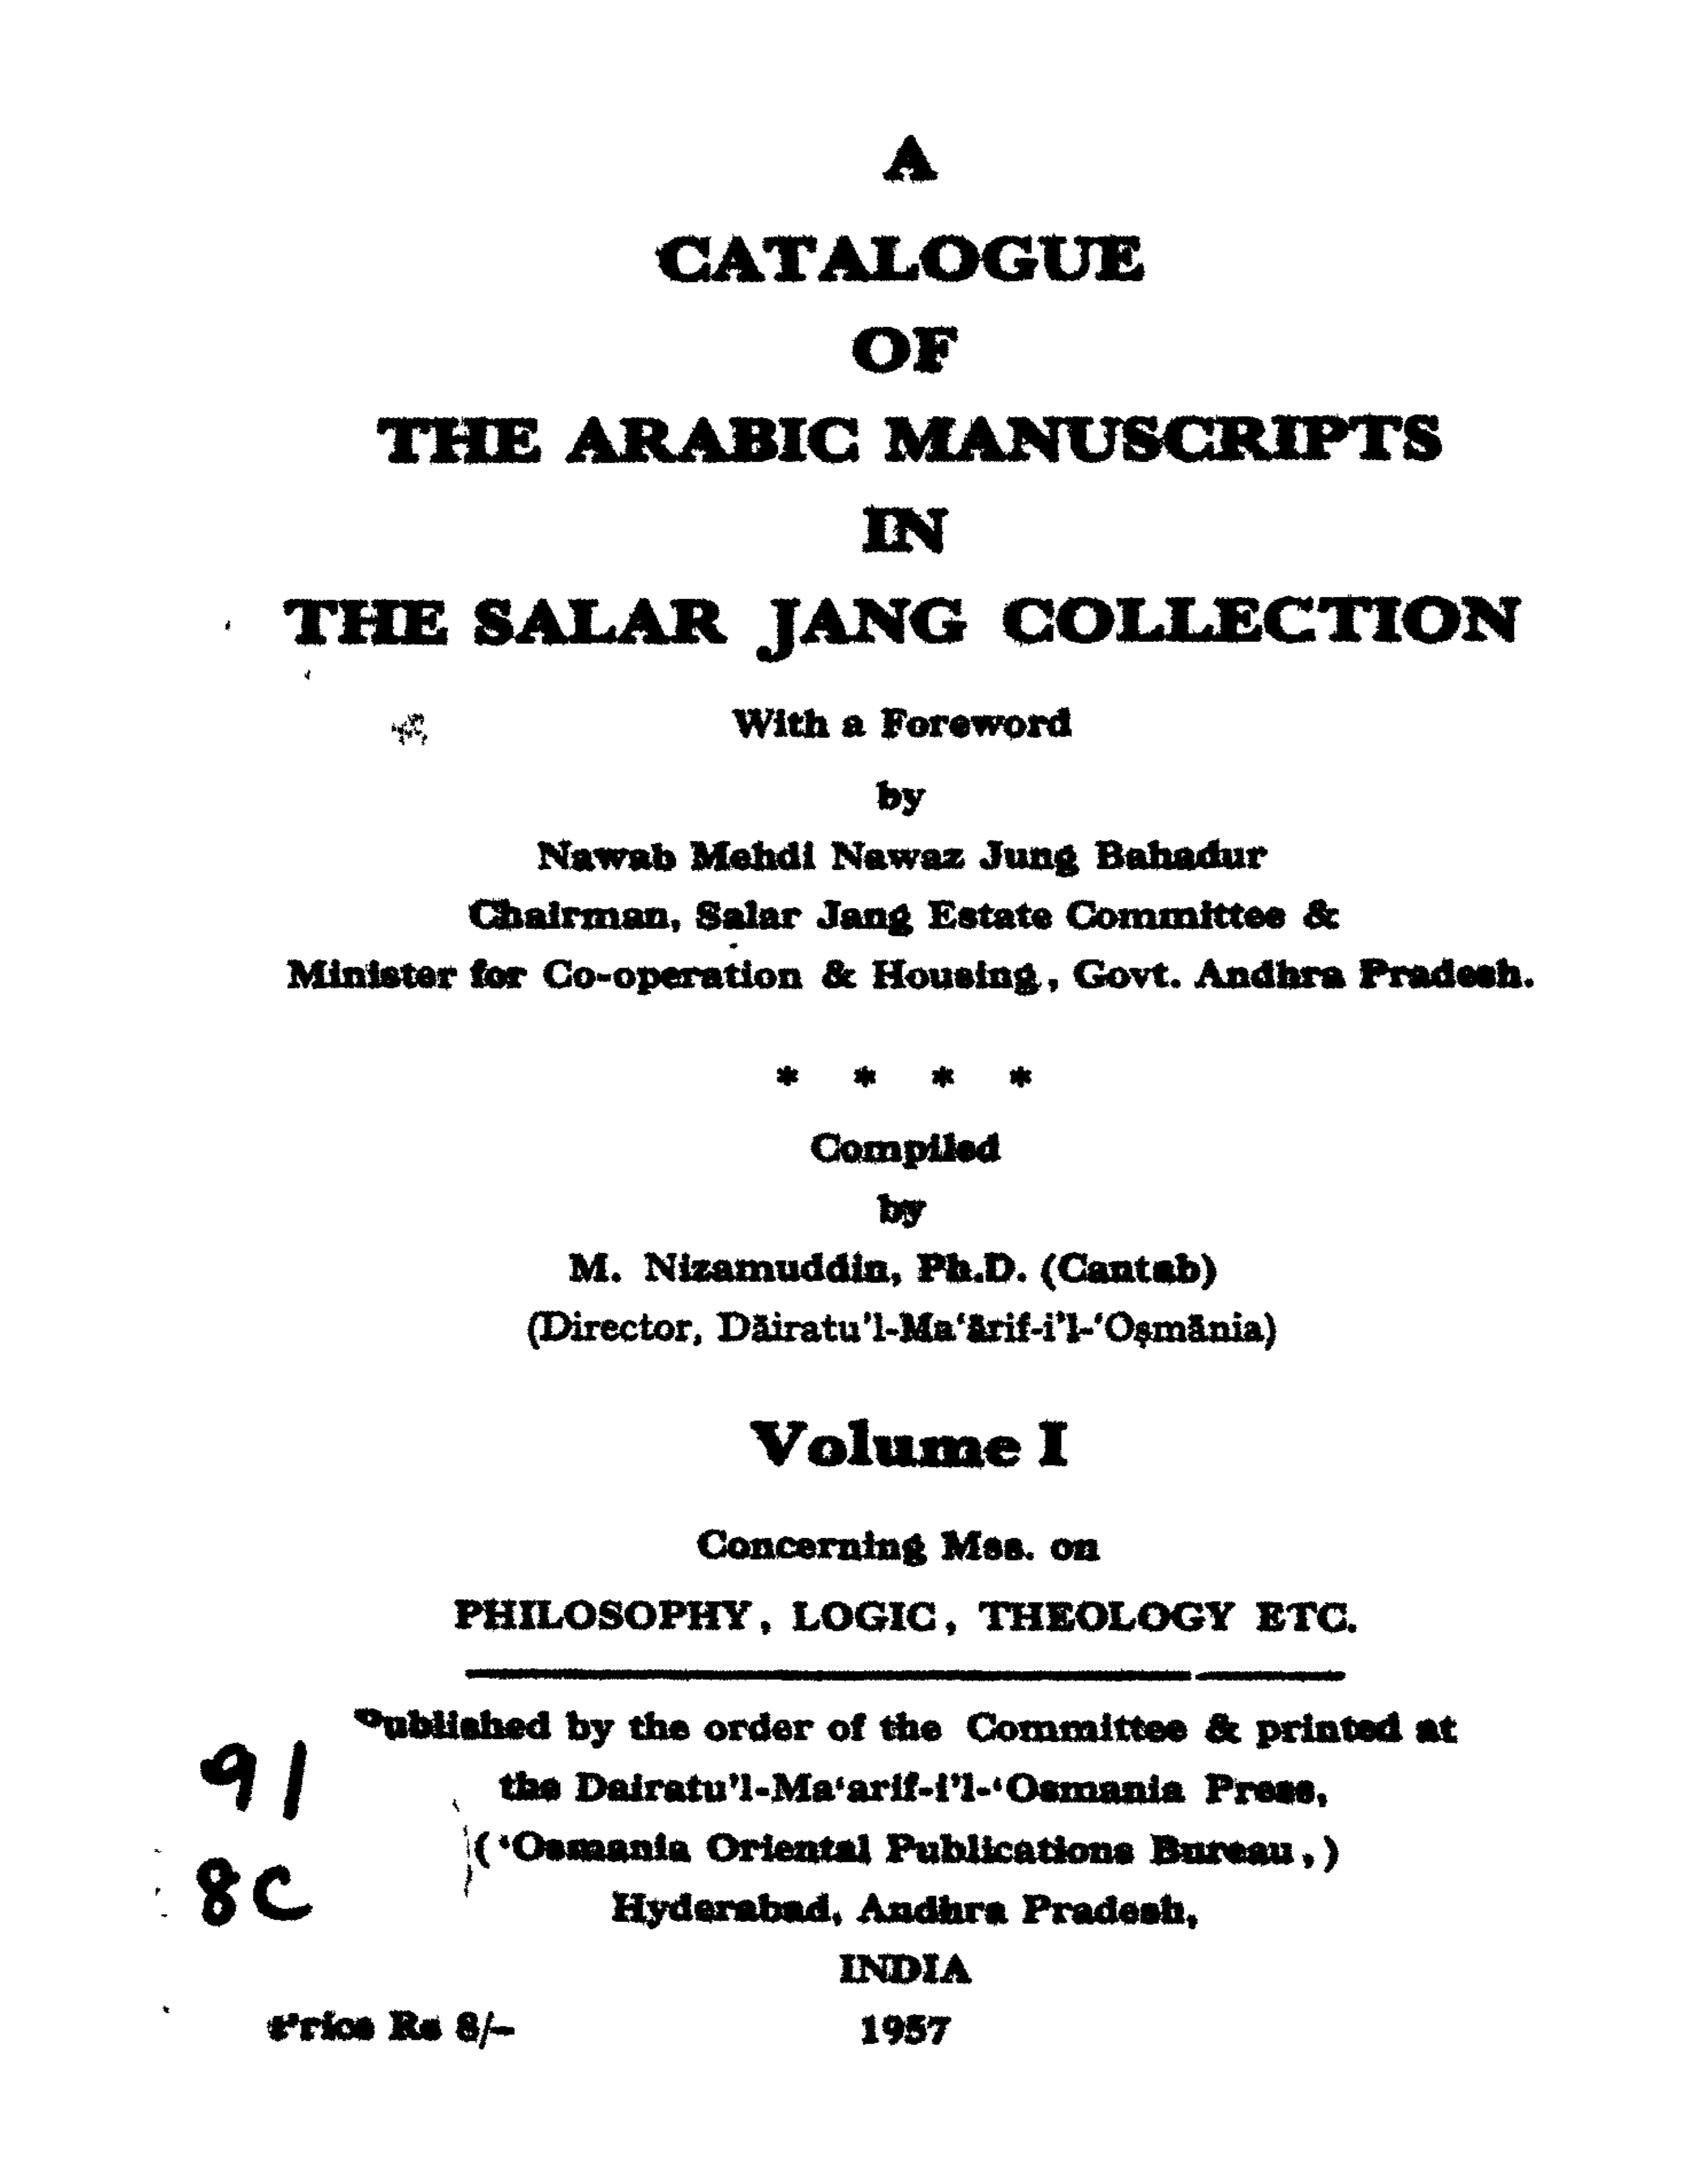 A
CATALOGUE
OF
THE ARABIC MANUSCRIPTS
IN
THE SALAR JANG COLLECTION
With a Foreword
by
Nawab Mehdi Nawaz Jung Bahadur
Chairman, Salar Jang Estate Committee &
Minister for Co-operation & Housing, Govt. Andhra Pradesh.
* * * *
Compiled
by
M. Nizamuddin, Ph.D. (Cantab)
(Director, Dāiratu’l-Ma‘ārif-i’l-‘Oṣmānia)
Volume I
Concerning Mss. on
PHILOSOPHY, LOGIC, THEOLOGY ETC.
Published by the order of the Committee & printed at
the Dairatu’l-Ma‘arif-i’l-‘Osmania Press,
(‘Osmania Oriental Publications Bureau,)
Hyderabad, Andhra Pradesh,
INDIA
Price Rs 8/- 1957
91
8C